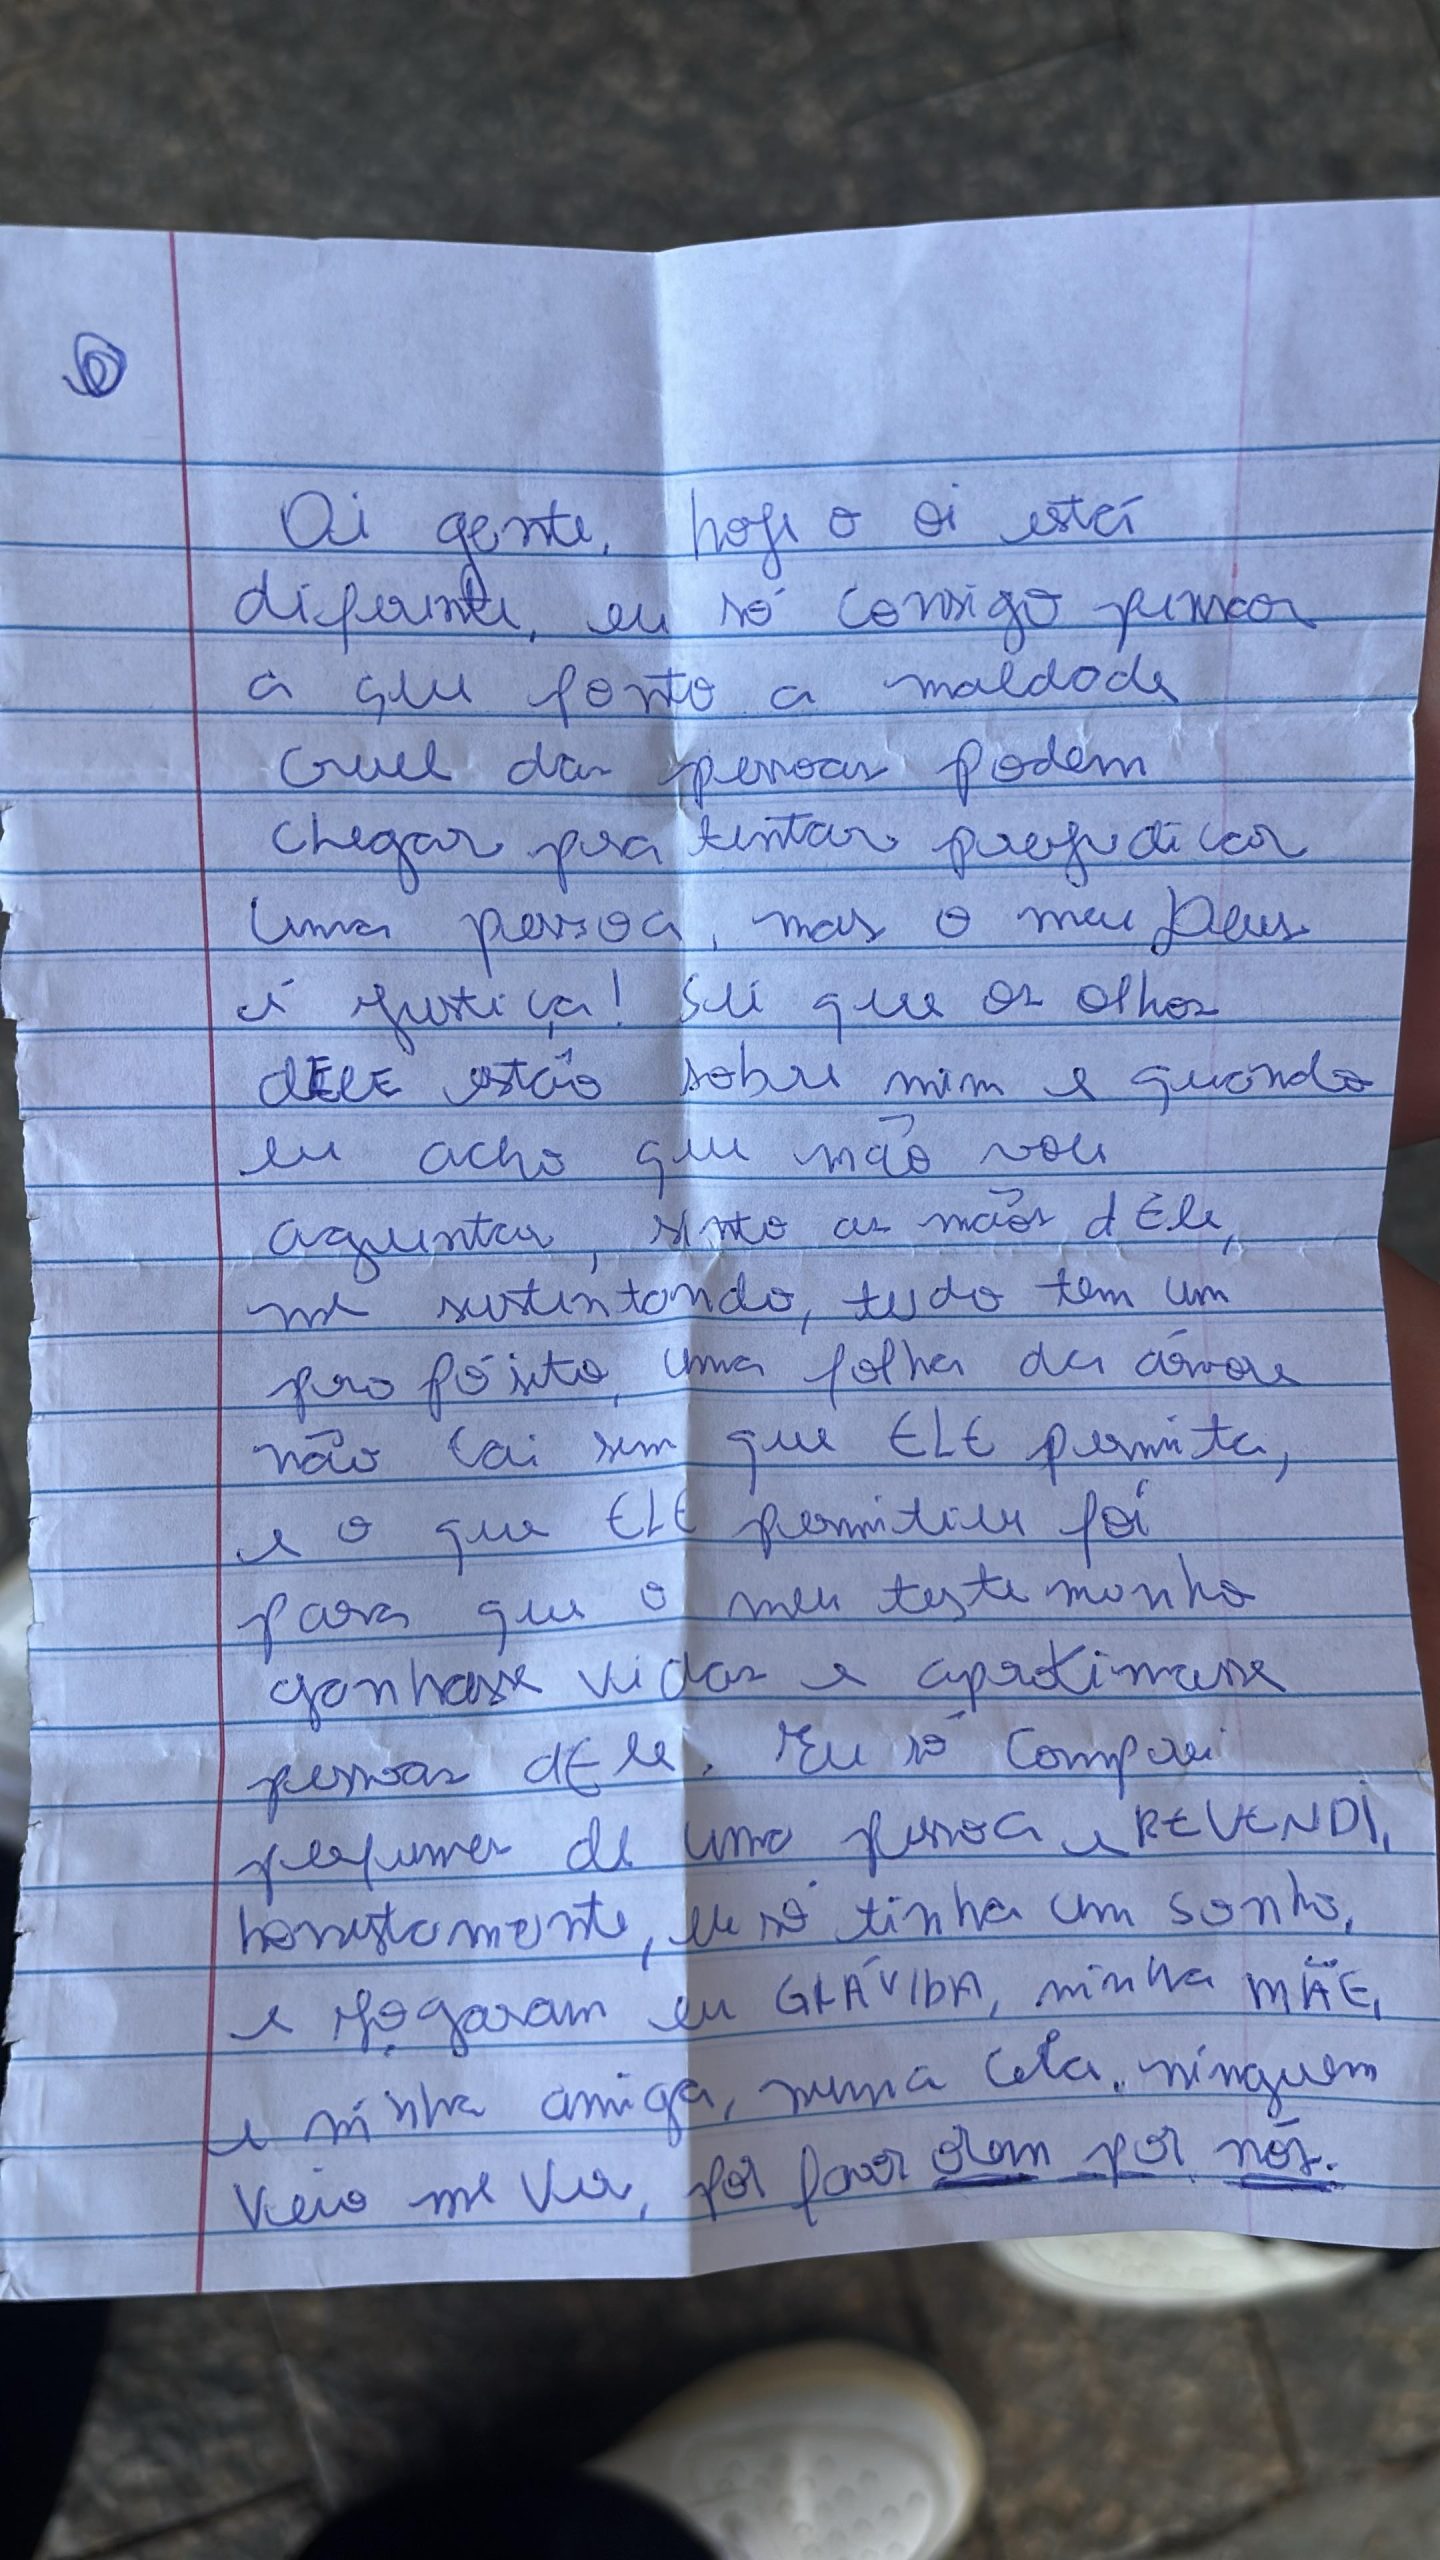 Oi gente, hoje o oi está
diferente, eu só consigo pensar
a que ponto a maldade
cruel das pessoas podem
chegar pra tentar prejudicar
uma pessoa, mas o meu Deus
é justiça! Sei que os olhos
dELE estão sobre mim e quando
eu acho que não vou
aguentar, sinto as mãos dEle,
me sustentando, tudo tem um
propósito, uma folha da árvore
não cai sem que ELE permita,
e o que ELE permitiu foi
para que o meu testemunho
ganhasse vidas e aproximasse
pessoas dEle. Eu só comprei
perfumes de uma pessoa e REVENDI,
honestamente, eu só tinha um sonho,
e jogaram eu GRÁVIDA, minha MÃE,
e minha amiga, numa cela. ninguem
veio me ver, por favor orem por nós.